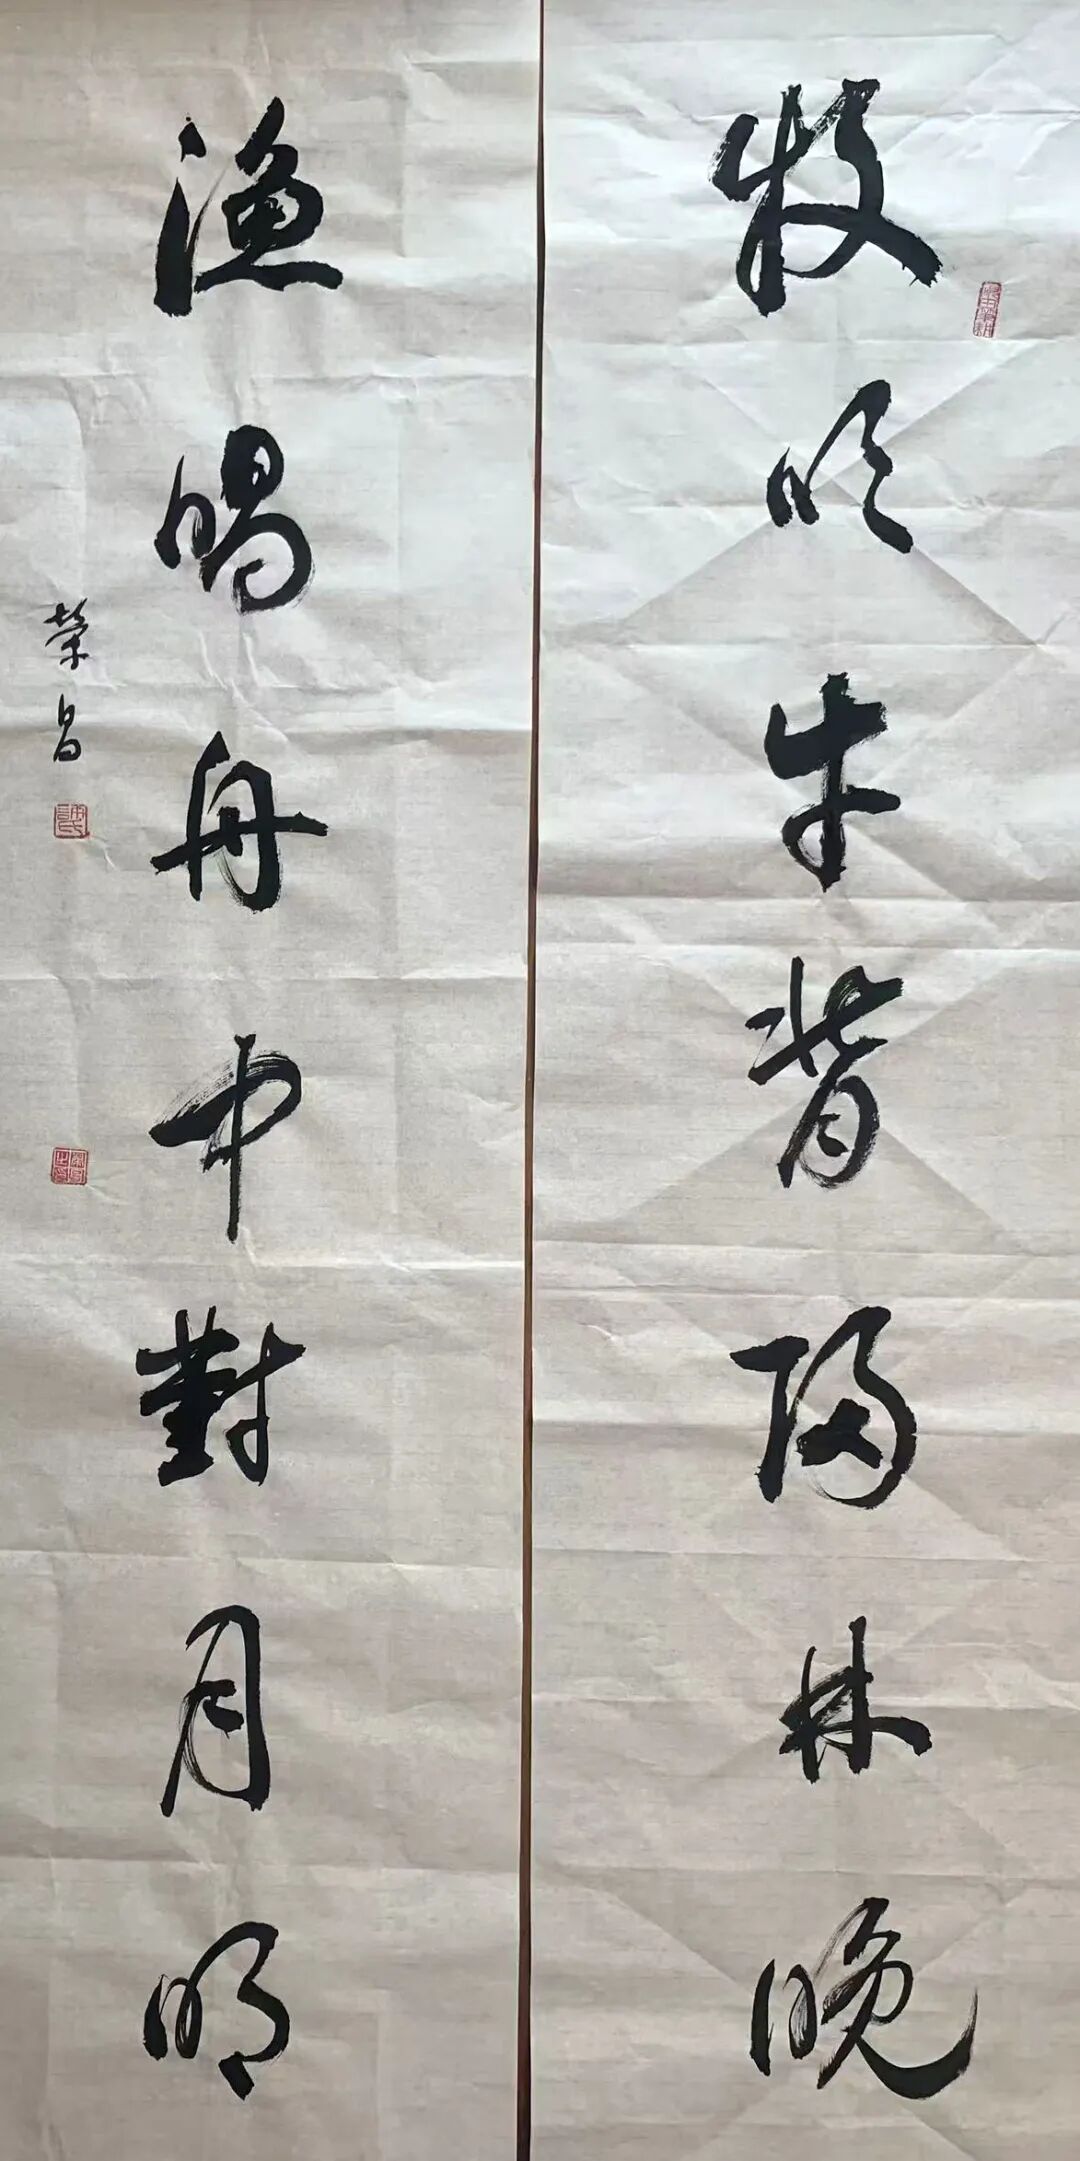 牧吹牛背隔林晚
漁唱舟中對月明
荣昌